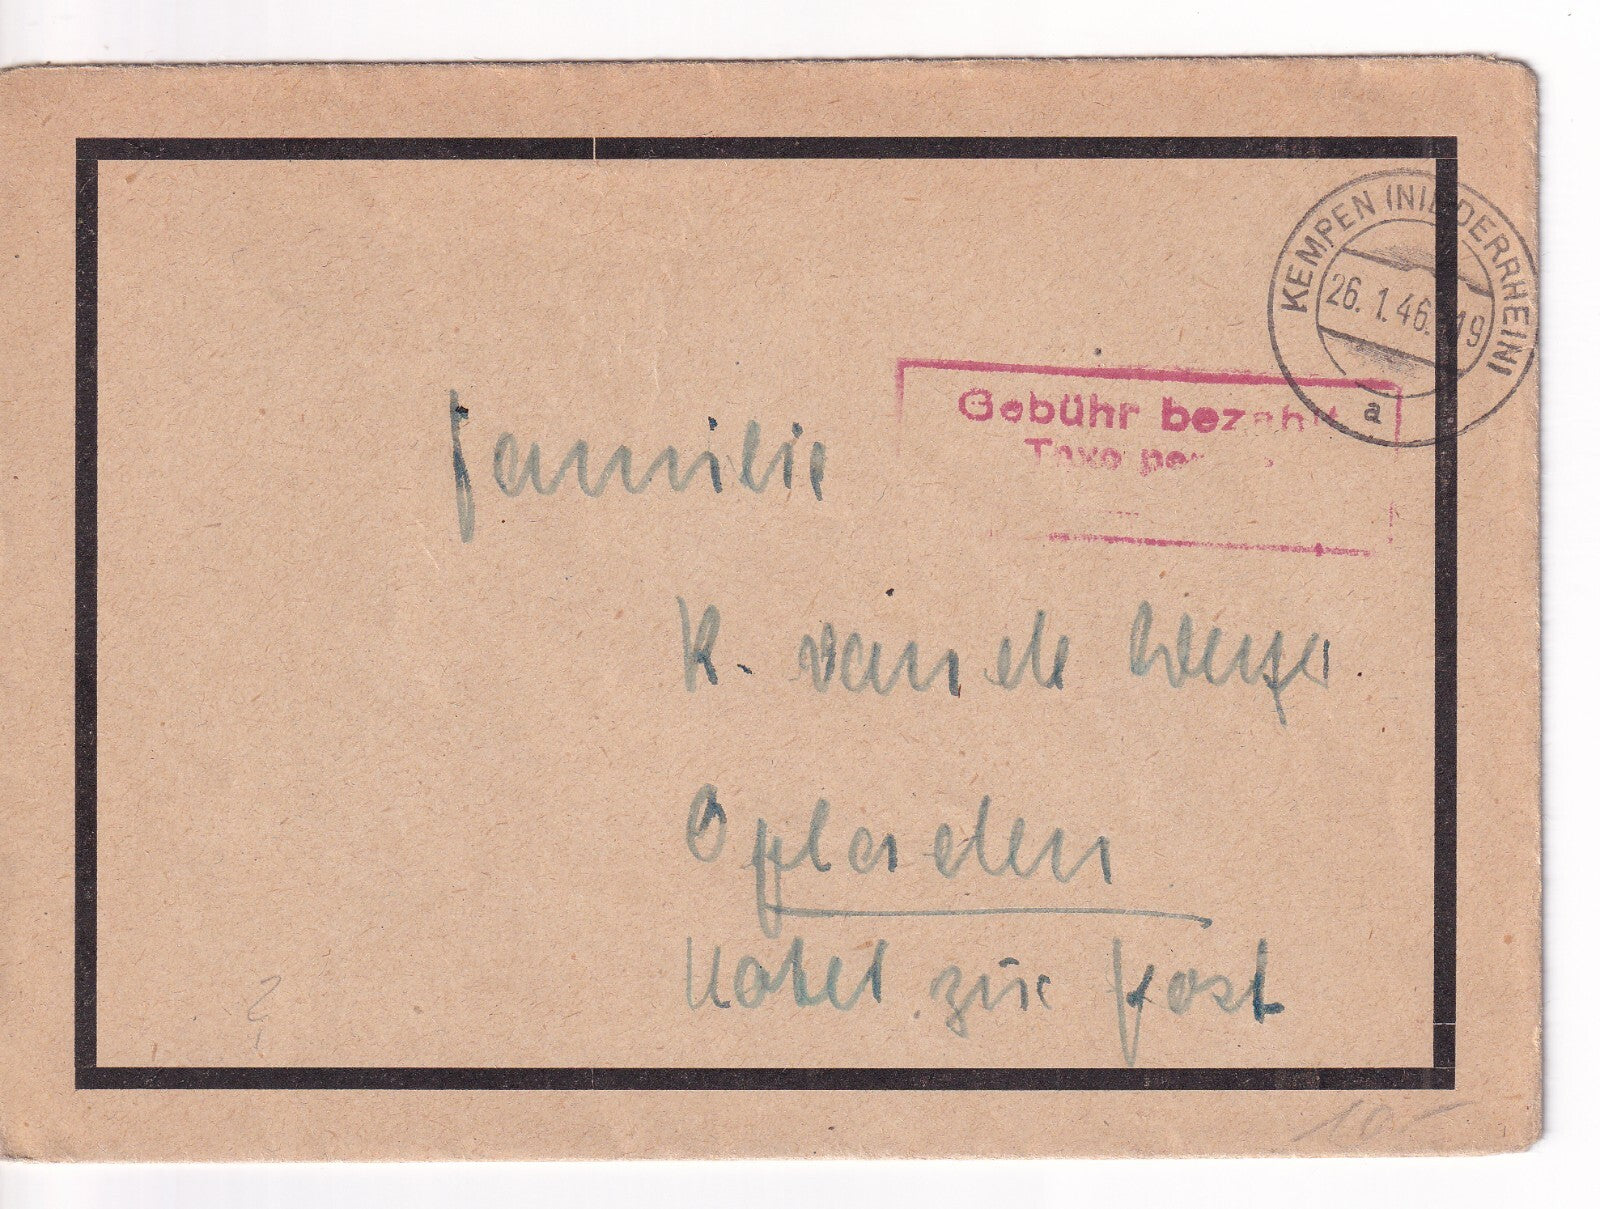 KEMPEN (NIEDERRHEIN)
26. 1. 46. 19
a
Gebühr bezahlt
Taxe
Familie
K. van de
Opladen
Hotel zur Post
10.-